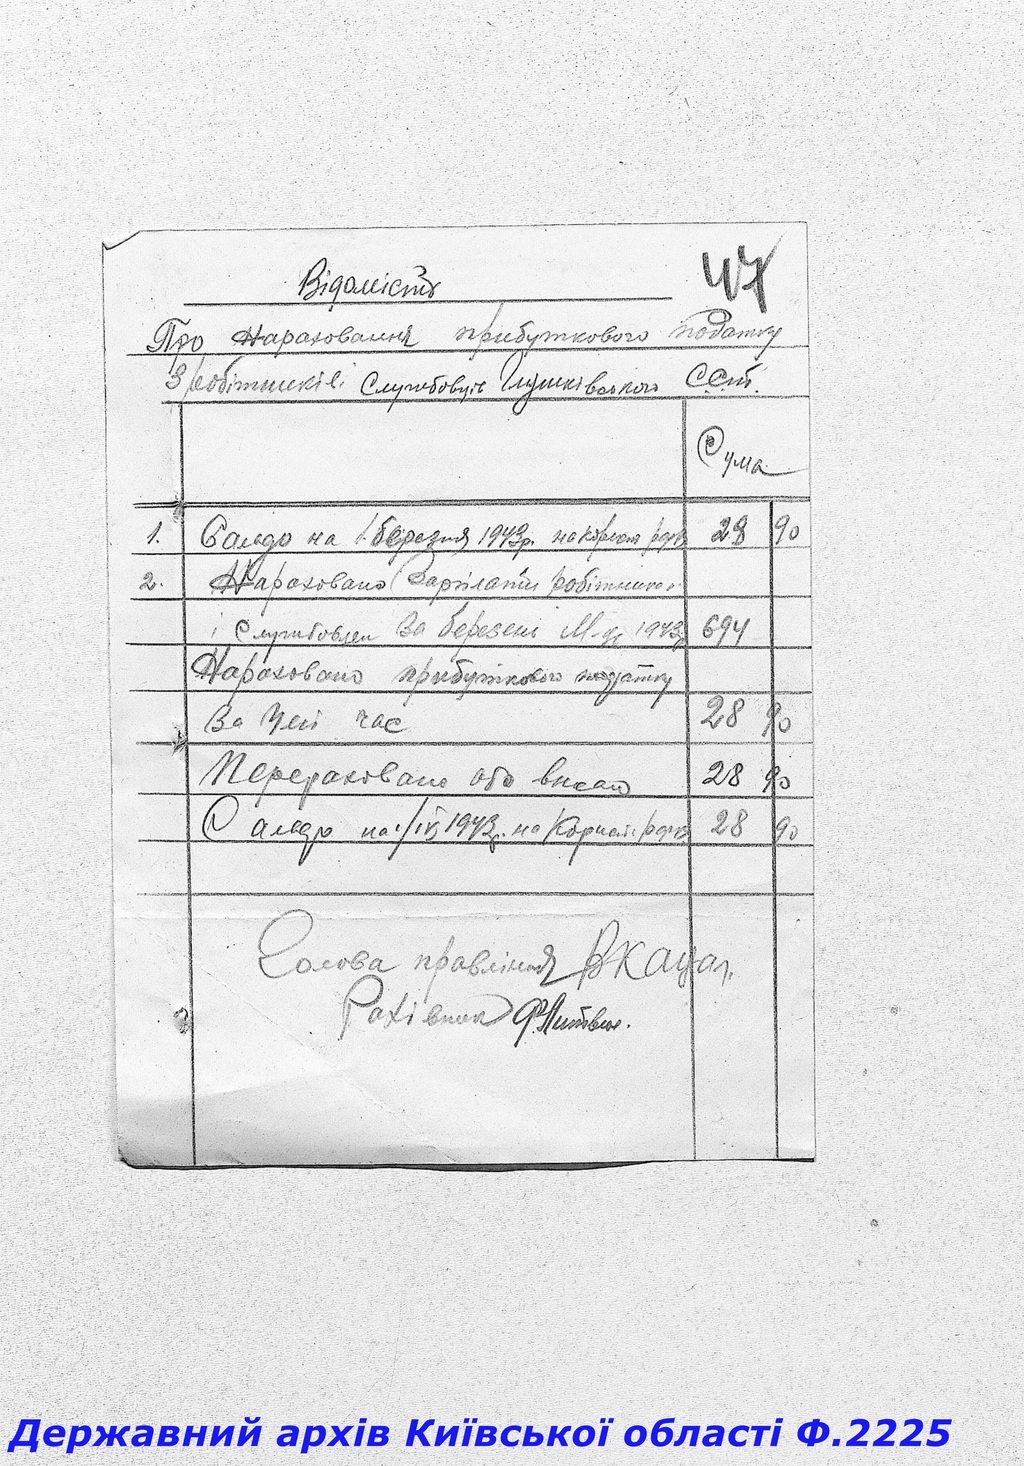 Відомість
47
Про Нараховання прибуткового податку
З робітників і Службовців С.С.т.
Сума
1. Сальдо на 1 березня 1943р. на користь 28 90
2. Нараховано Зарплати робітникам
і Службовцям За березень М-ць 1943р. 694
Нараховано прибуткового податку
За Цей час 28 90
Перераховано або внесено 28 90
Сальдо на 1/IV 1943р. на Користь 28 90
Голова правління
Рахівник
Державний архів Київської області Ф.2225